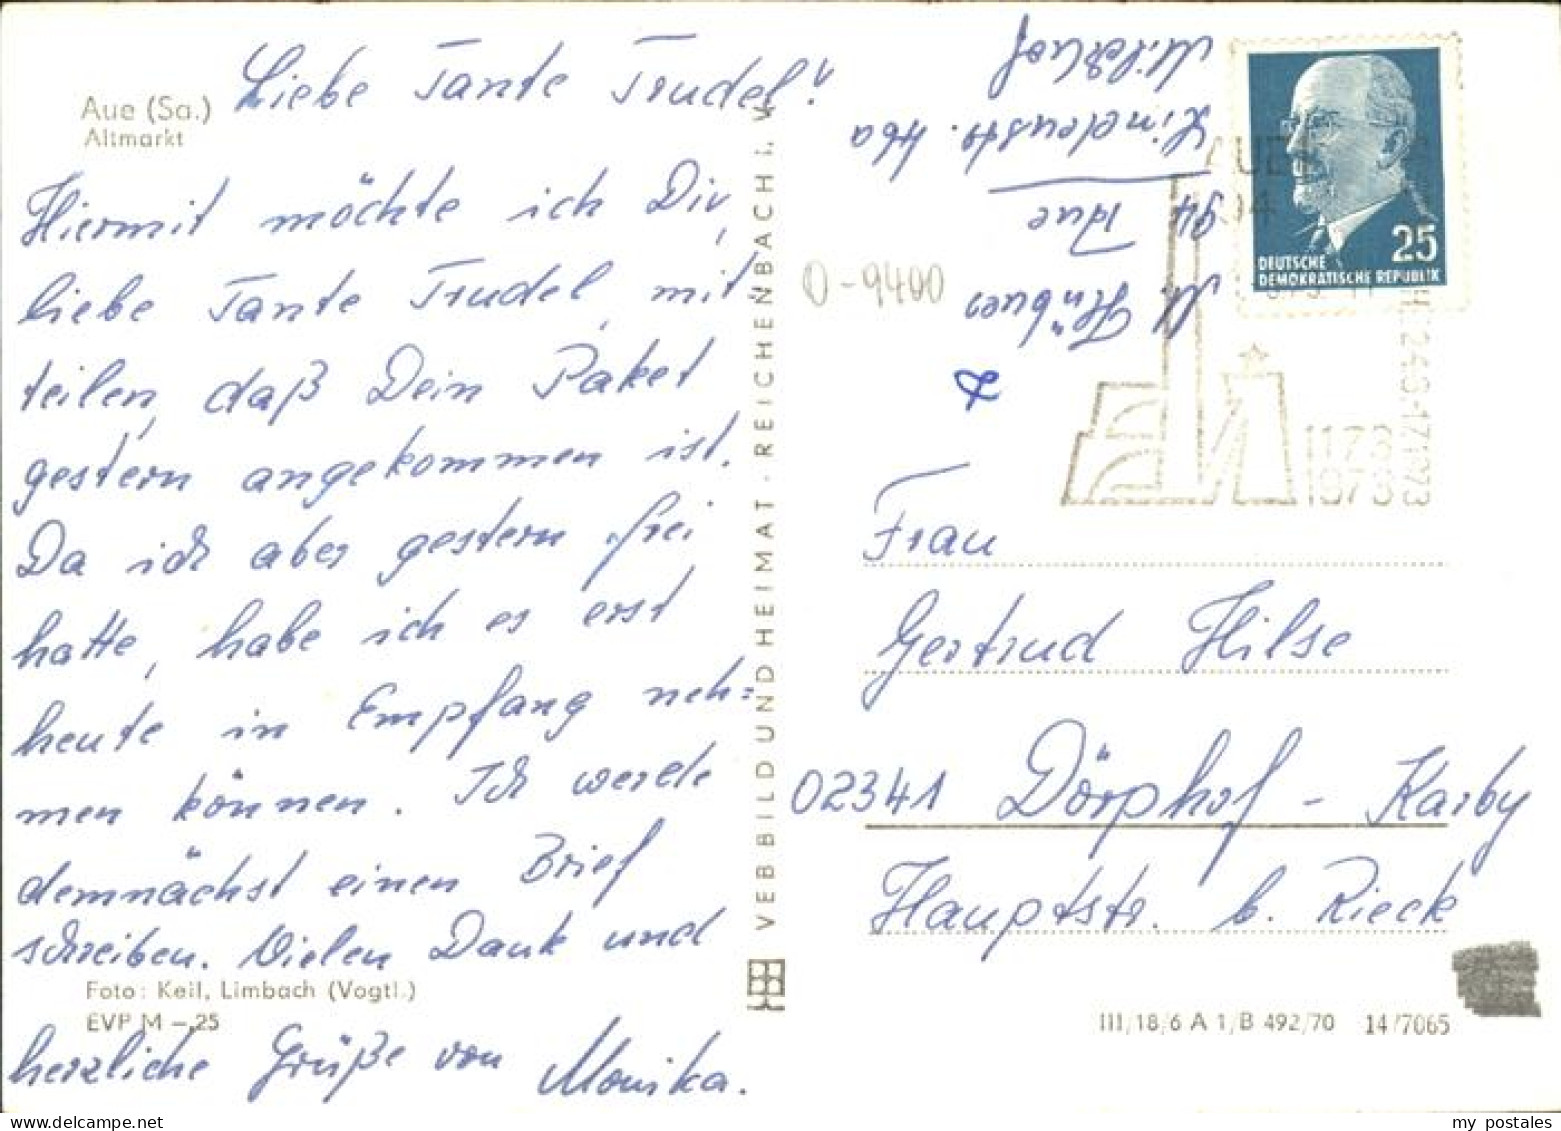 Aue (Sa.)
Altmarkt
Liebe Tante Trudel!
Hiermit möchte ich Dir,
liebe Tante Trudel, mit,
teilen, daß Dein Paket
gestern angekommen ist.
Da ich aber gestern frei
hatte, habe ich es erst
heute in Empfang neh=
men können. Ich werde
demnächst einen Brief
schreiben. Vielen Dank und
herzliche Grüße von Monika.
Foto: Keil, Limbach (Vogtl.)
EVP M -,25
VEB BILD UND HEIMAT · REICHENBACH I. V.
M. Hübner
94 Aue
Lindenstr. 46a
O-9400
25
DEUTSCHE
DEMOKRATISCHE REPUBLIK
AUE
1173
1973
Frau
Gertrud Hilse
02341 Dörphof - Karby
Hauptstr. b. Rieck
III/18/6 A 1/B 492/70 14/7065
my postales